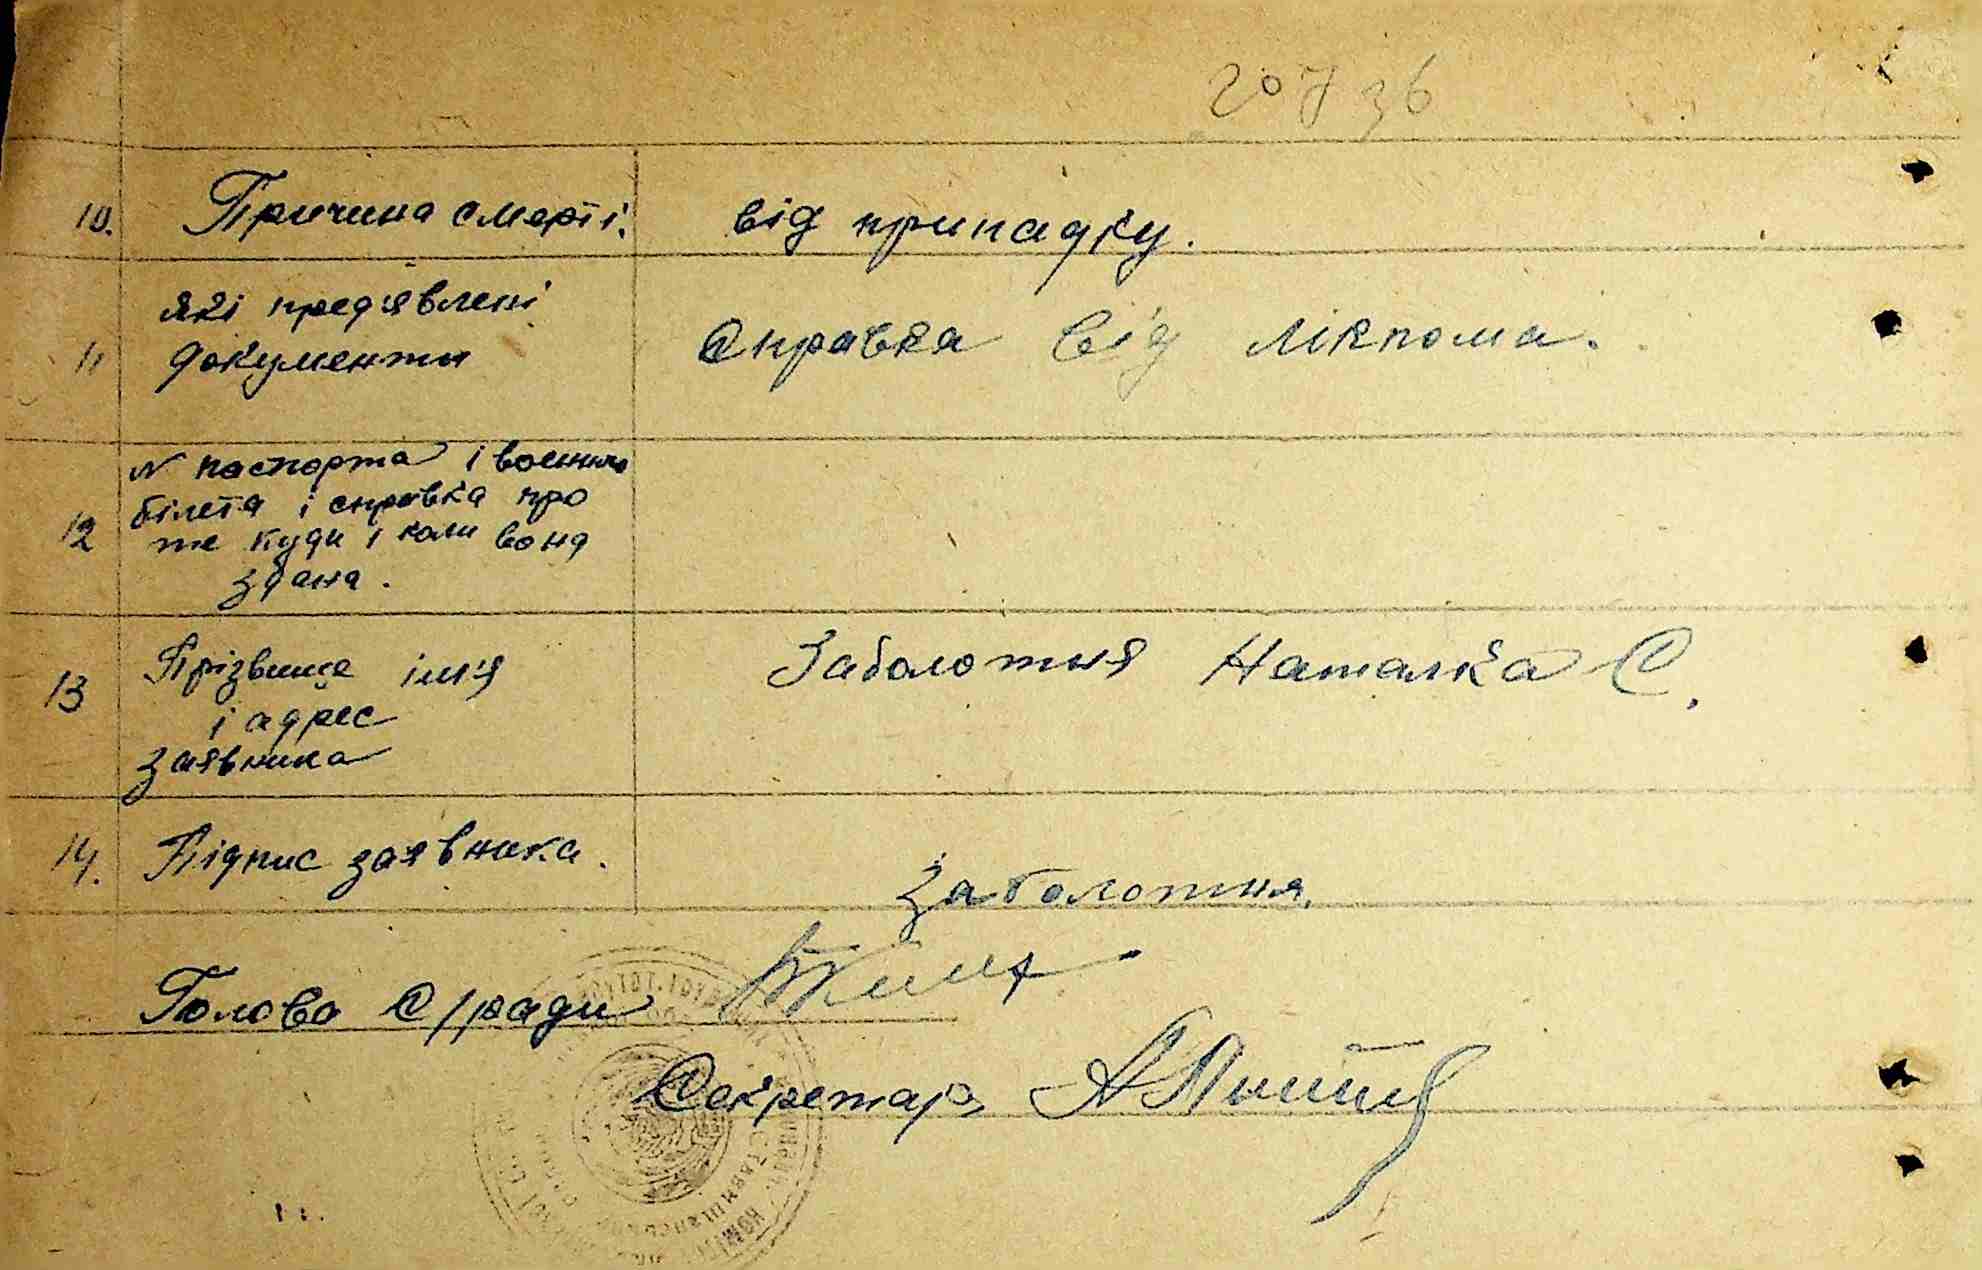 207 36
10. Причина смерті. від припадку.
які предявлені
11 документи Справка від лікпома.
N паспорта і военного
білета і справка про
12 те куди і коли вона
здана.
13 Прізвище імя Заболотня Наталка С.
і адрес
заявника
14. Підпис заявника. Заболотня.
Голова С/ради
Секретар